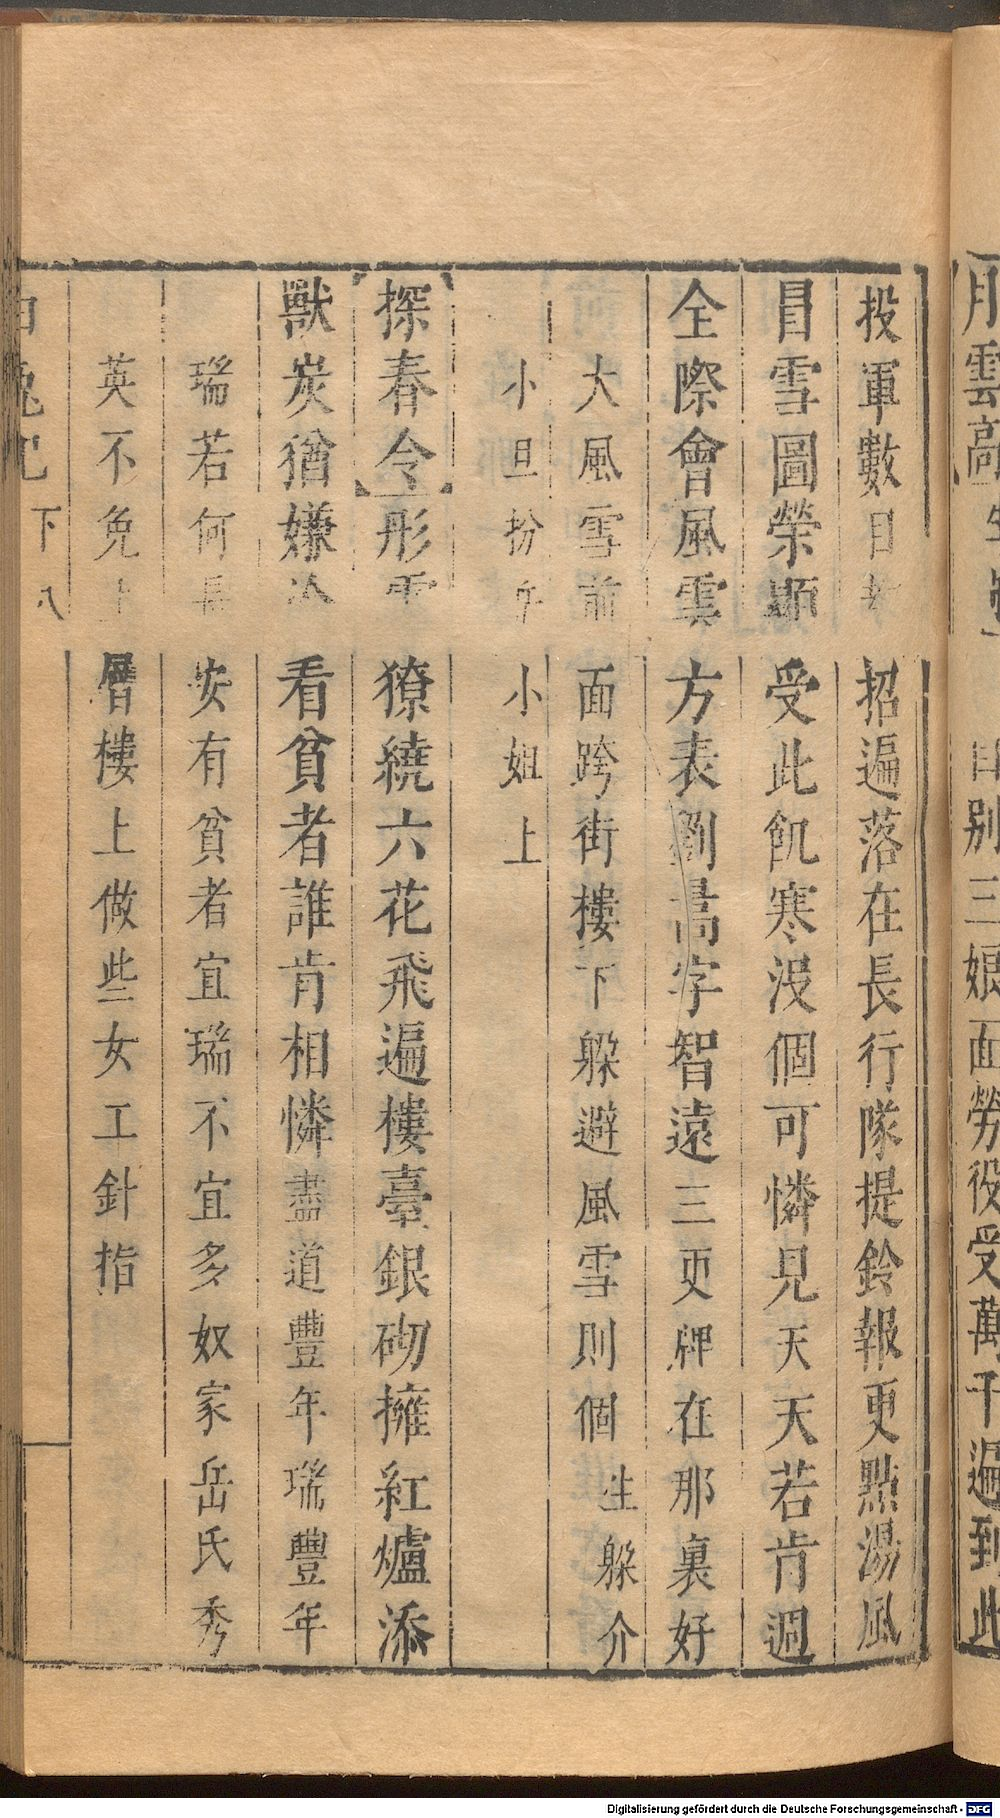 月雲高
日別三娘面勞役受萬千遍到此
投軍數日
招遍落在長行隊提鈴報更點湯風
冒雪圖榮顯受此飢寒沒個可憐見天天若肯週
全際會風雲方表劉暠字智遠三更牌在那裏好
大風雪前面跨街樓下躲避風雪則個生躲介
小旦扮
小姐上
探春令彤雲獠繞六花飛遍樓臺銀砌擁紅爐添
獸炭猶嫌
看貧者誰肯相憐盡道豐年瑞豐年
瑞若何
安有貧者宜瑞不宜多奴家岳氏秀
英不免上層樓上做些女工針指
白兔記 下 八
Digitalisierung gefördert durch die Deutsche Forschungsgemeinschaft - DFG